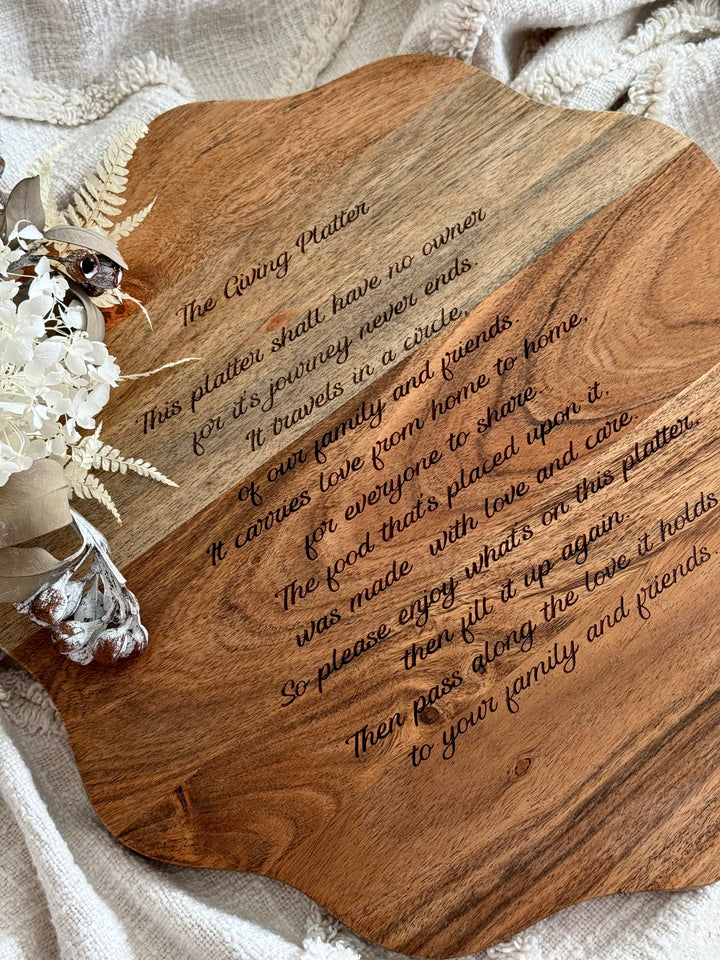 The Giving Platter
This platter shall have no owner
for it's journey never ends.
It travels in a circle,
of our family and friends.
It carries love from home to home,
for everyone to share.
The food that's placed upon it,
was made with love and care.
So please enjoy what's on this platter,
then fill it up again.
Then pass along the love it holds
to your family and friends.